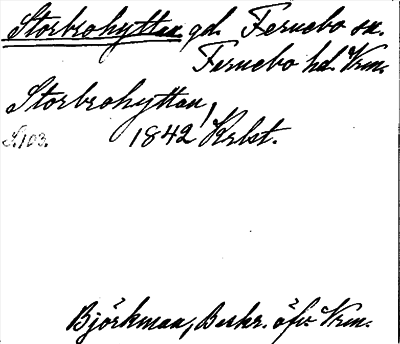 Storbrohyttan gd. Fernebo sn.
Fernebo hd. Vrm.
Storbrohyttan,
S.103. 1842 Krbst.
Björkman, Beskr. öfv. Vrm.